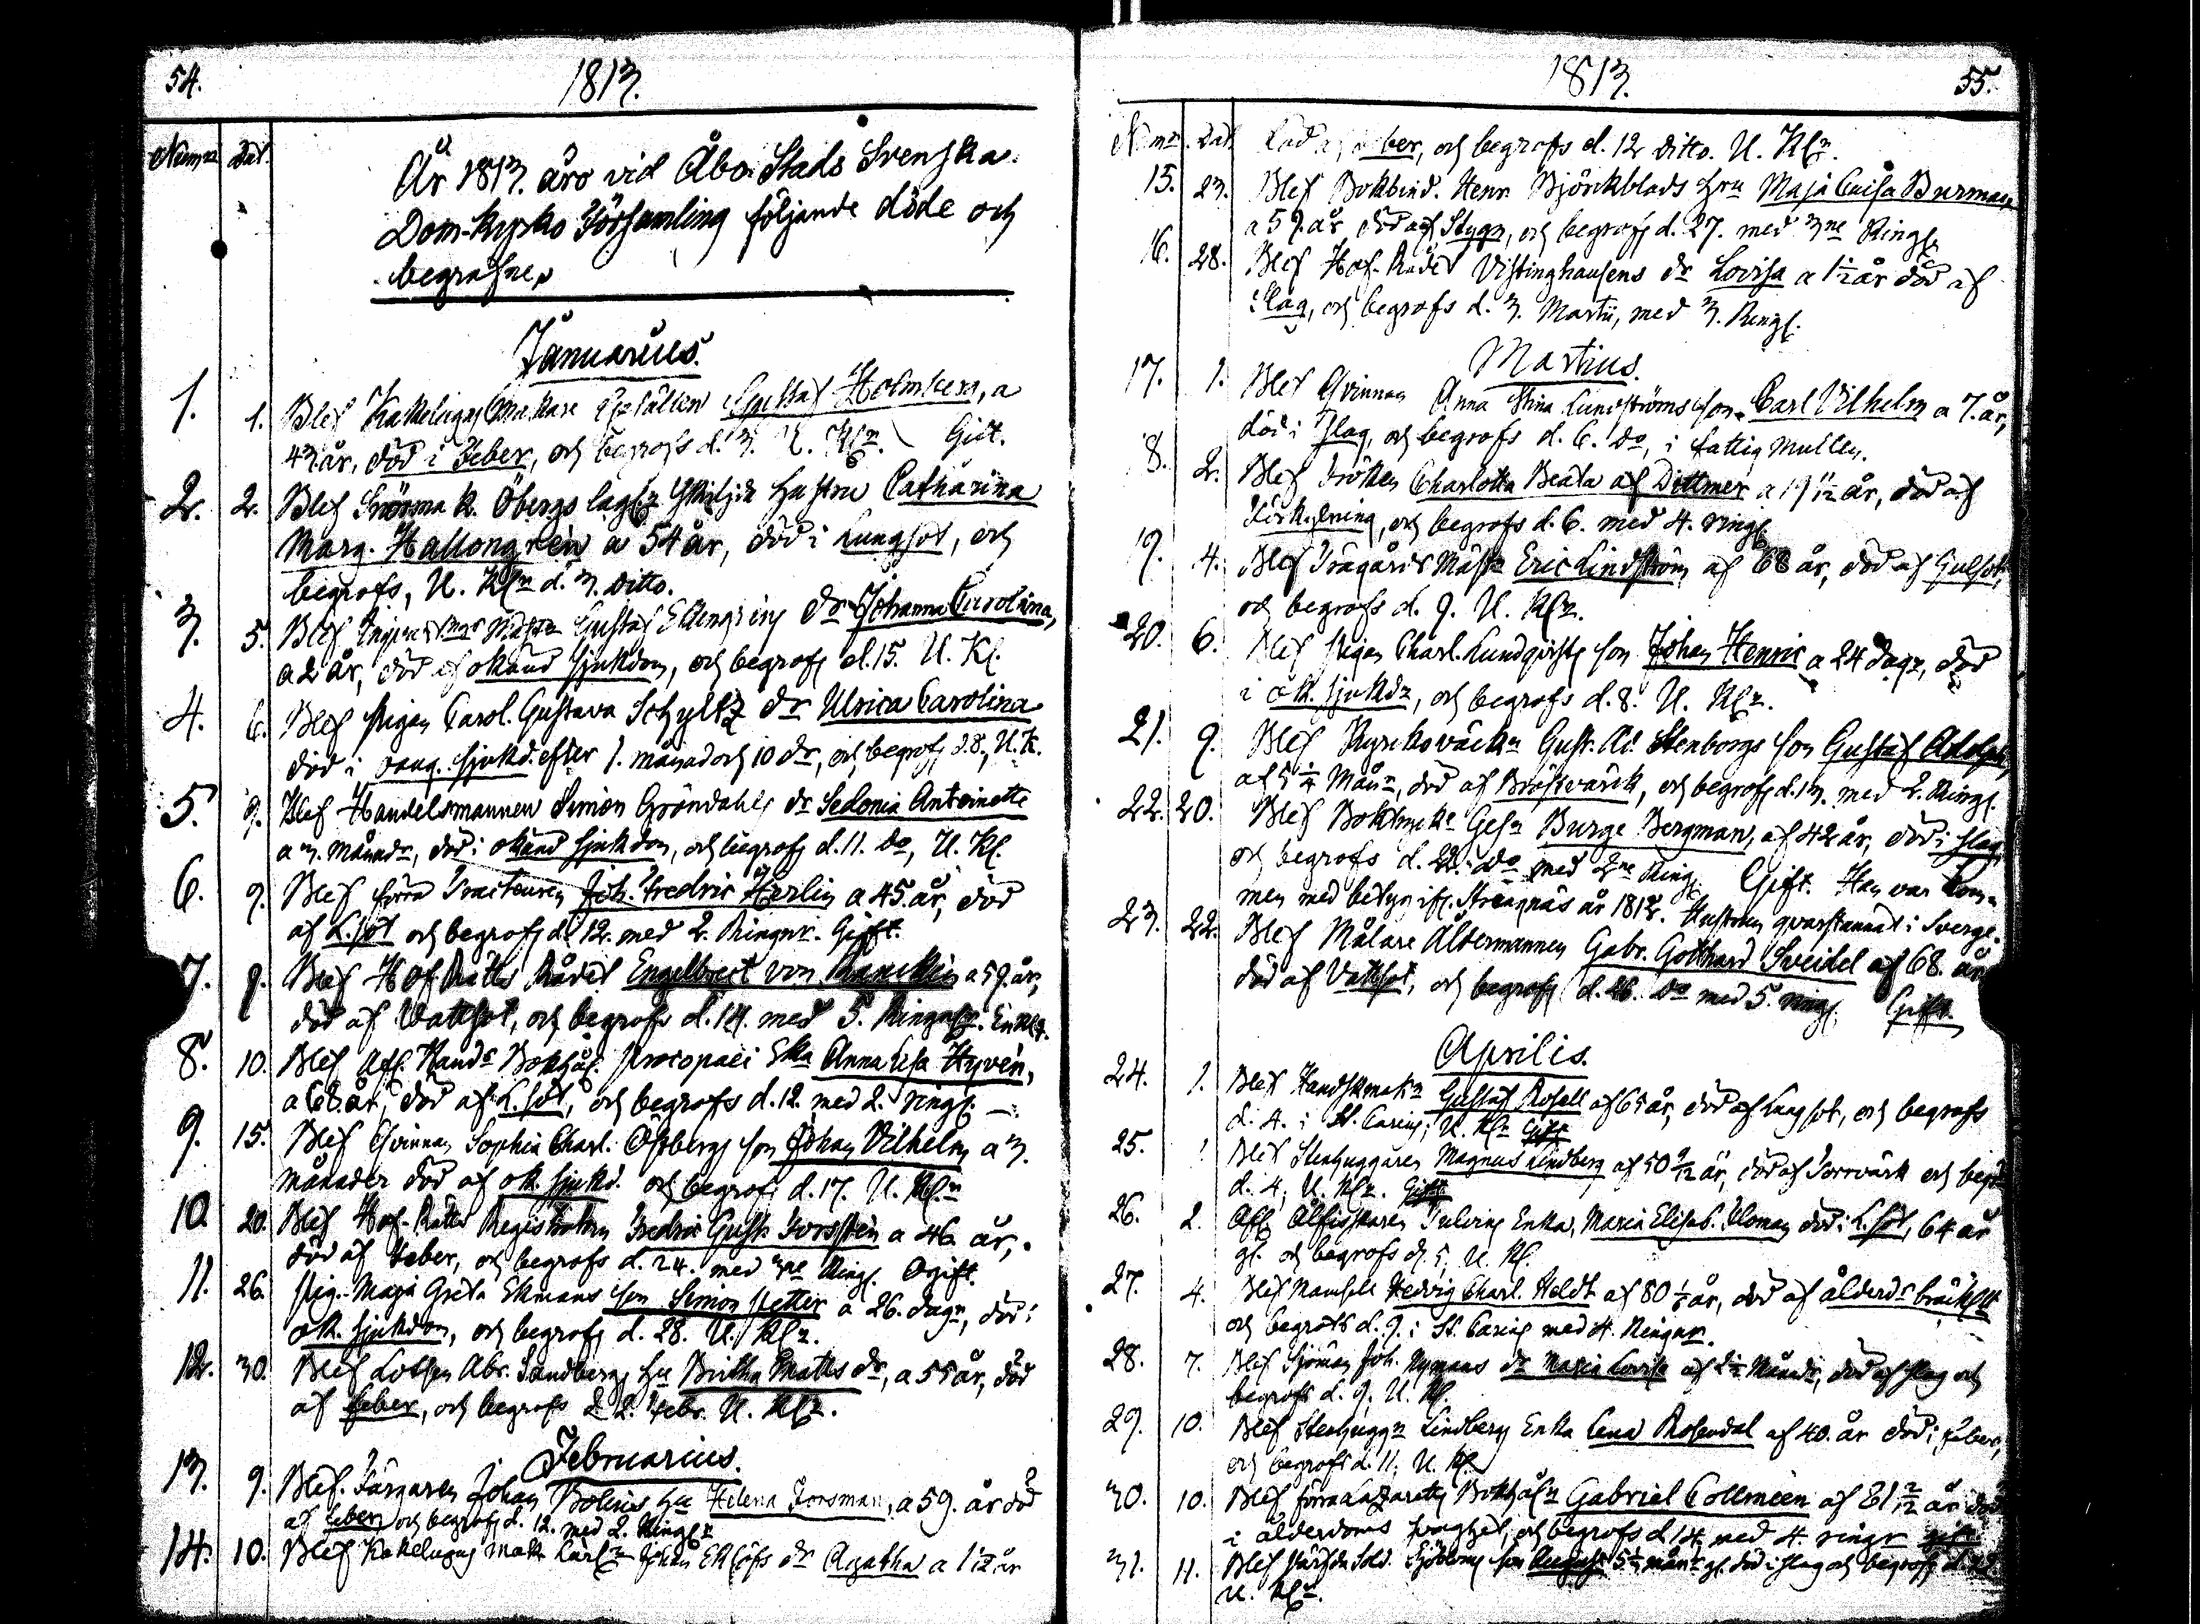 54. 1813.
Numr Dat.
År 1813. äro vid Åbo Stads Svenska
Dom-kyrko Församling följande döde och
begrafne.
Januarius.
1. 1. Blef Kakelugnsmakare Gesällen Gustaf Holmberg, a
43 år, död i Feber, och begrofs d. 3. U. Klr. Gift.
2. 2. Blef Öbergs lagl. skiljde hustru Catharina
Marg. Hallongren a 54 år, död i Lungsot, och
begrofs, U. Klr d. 3. ditto.
3. 5. Blef Gustaf dr Johanna Carolina,
a 2 år, död af okänd sjukdom, och begrofs d. 15. U. Kl.
4. 6. Blef pigan Carol. Gustava Schyltz dr Ulrica Carolina
död i sjukd. efter 1. månad och 10 dr, och begrofs d. 8, U. K.
5. 9. Blef Handelsmannen Simon Gröndahls dr Sedonia Antoinette
a 3. månadr, död i okänd sjukdom, och begrofs d. 11. do, U. Kl.
6. 9. Blef förra Tracteuren Joh. Fredric Herlin a 45 år, död
af L.sot och begrofs d. 12. med 2. Ringnr. Gift.
7. 9. Blef Hof Rätts Rådet Engelbrect von a 59. år,
död af Wattsot, och begrofs d. 14. med 5. Ringnr. Enkl.
8. 10. Blef Afl. Hands Bokhål. Procopaei Eka Anna Lisa Hyvén,
a 68 år, död af L. sot, och begrofs d. 12. med 2. ringr. —
9. 15. Blef Qvinnan Sophia Charl. Östbergs son Johan Vilhelm a 3.
månader död af ok. sjukd. och begrofs d. 17. U. Klr
10. 20. Blef Hof-Rätts Registratorn Fredric Gust. Forsstein a 46 år,
död af Feber, och begrofs d. 24. med 3ne Ringr. Ogift.
11. 26. Pig. Maja Greta Ekmans son Simon Petter a 26. dagr, död i
ok. sjukdom, och begrofs d. 28. U. Klr.
12. 30. Blef Lotsen Abr. Sandbergs hu Britha Matts dr, a 55 år, död
af feber, och begrofs d. 2. Febr. U. Klr.
Februarius.
13. 9. Blef. Färgaren Johan Bolins hu Helena Forsman, a 59. år död
af feber och begrofs d. 12. med 2. Ringr
14. 10. Blef Kakelugns mak Johan Eklöfs dr Agatha a 1 år
1813. 55.
Numr Dat. död af feber, och begrofs d. 12 ditto. U. Klr.
15. 23. Blef Bokbind. Henr. Björkblads hru Maja Caisa Burman
a 59. år död af Stygn, och begrofs d. 27. med 3ne Ringr
16. 28. Blef Hof-Rådet Vistinghausens dr Lovisa a 1½ år död af
slag, och begrofs d. 3. Martii, med 3. Ringr.
Martius.
17. 1. Blef Qvinnan Anna Stina Lundströms son Carl Vilhelm a 7. år,
död i slag, och begrofs d. 6. do, i fattig mullen.
8. 2. Blef Fröken Charlotta Beata af Dittmer a 19 år, död af
förkylning, och begrofs d. 6. med 4. ringr
19. 4. Blef Trägårds Mäst. Eric Lindström af 68 år, död af Gulsot,
och begrofs d. 9. U. Klr.
20. 6. Blef pigan Charl. Lundqvists son Johan Henric a 24 dagr, död
i ok. sjukd., och begrofs d. 8. U. Klr.
21. 9. Blef Kyrkoväck. Gust. Ad. Stenborgs son Gustaf Adolph,
af 5¼ Månr, död af Bröstvärck, och begrofs d. 13. med 2. Ringr.
22. 20. Blef Boktryck. Ges. Burge Bergman, af 42 år, död i slag,
och begrofs d. 22. do med 2ne Ring. Gift. Han var kom-
men med betyg ifr. Strengnäs år 1812. Hustrun qvarstannat i Sverge.
23. 22. Blef Målare Åldermannen Gabr. Gotthard Sveidel af 68. år
död af Vattsot, och begrofs d. 26. do med 5. ringr. Gift.
Aprilis.
24. 1. Blef Handskmak. Gustaf Rosell af 65 år, död af Lungsot, och begrofs
d. 4. i St. Carins; U. Klr Gift
25. 1 Blef Stenhuggaren Magnus Lindberg af 50 9/12 år, död af Torrvärk och begr.
d. 4, U. Klr. Gift
26. 2. Afl. Enka, Maria Elisab. Ekman död i L. sot, 64 år
gl. och begrofs d. 5, U. Kl.
27. 4. Blef Mamsell Hedvig Charl. Heldt af 80 år, död af ålderds bräckl.
och begrofs d. 9. i St. Carins med 4. Ringnr.
28. 7. Blef Sjöman Joh. Nymans dr Maria Lovisa af 2½ Månr, död af slag och
begrofs d. 9. U. Kl.
29. 10. Blef Stenhuggr Lindbergs Enka Lena Rosendal af 40. år död i feber,
och begrofs d. 11, U. Kl.
30. 10. Blef förra Lazaretts Bokhål. Gabriel Collmeen af 81 2/12 år död
i ålderdoms svaghet, och begrofs d. 14 med 4. ringr gift
31. 11. Blef Sold. Sjöbloms son August 5½ månr gl. död i slag och begrofs d.
U. Klr.